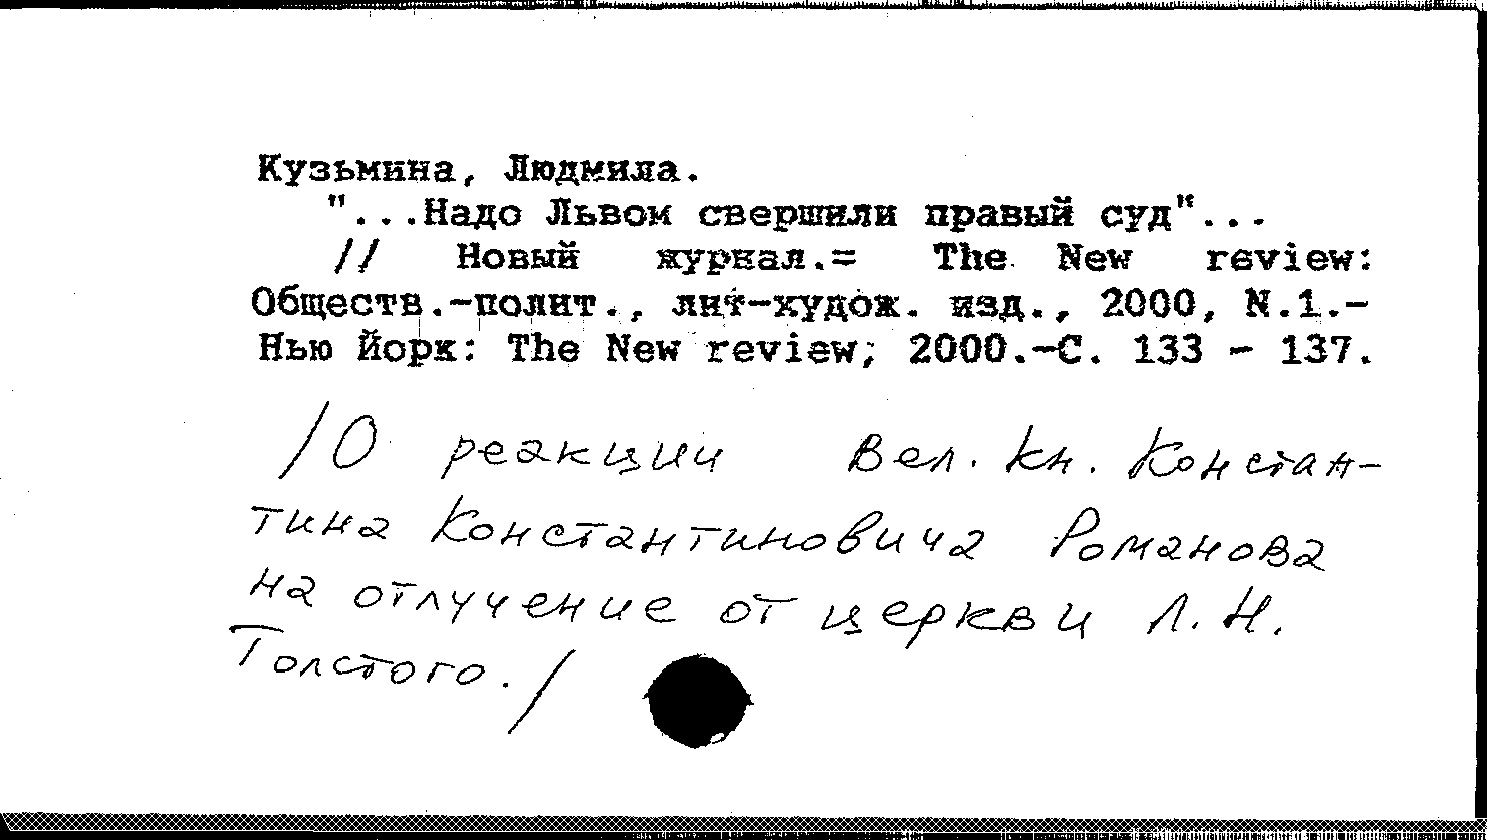 Кузьмина, Людмила.
"...Надо Львом свершили правый суд"...
// Новый журнал.= The New review:
Обществ.-полит., лит-худож. изд., 2000, N.1.-
Нью Йорк: The New review, 2000.-С. 133 - 137.
/О реакции Вел. Кн. Констан-
тина Константиновича Романова
на отлучение от церкви Л.Н.
Толстого./